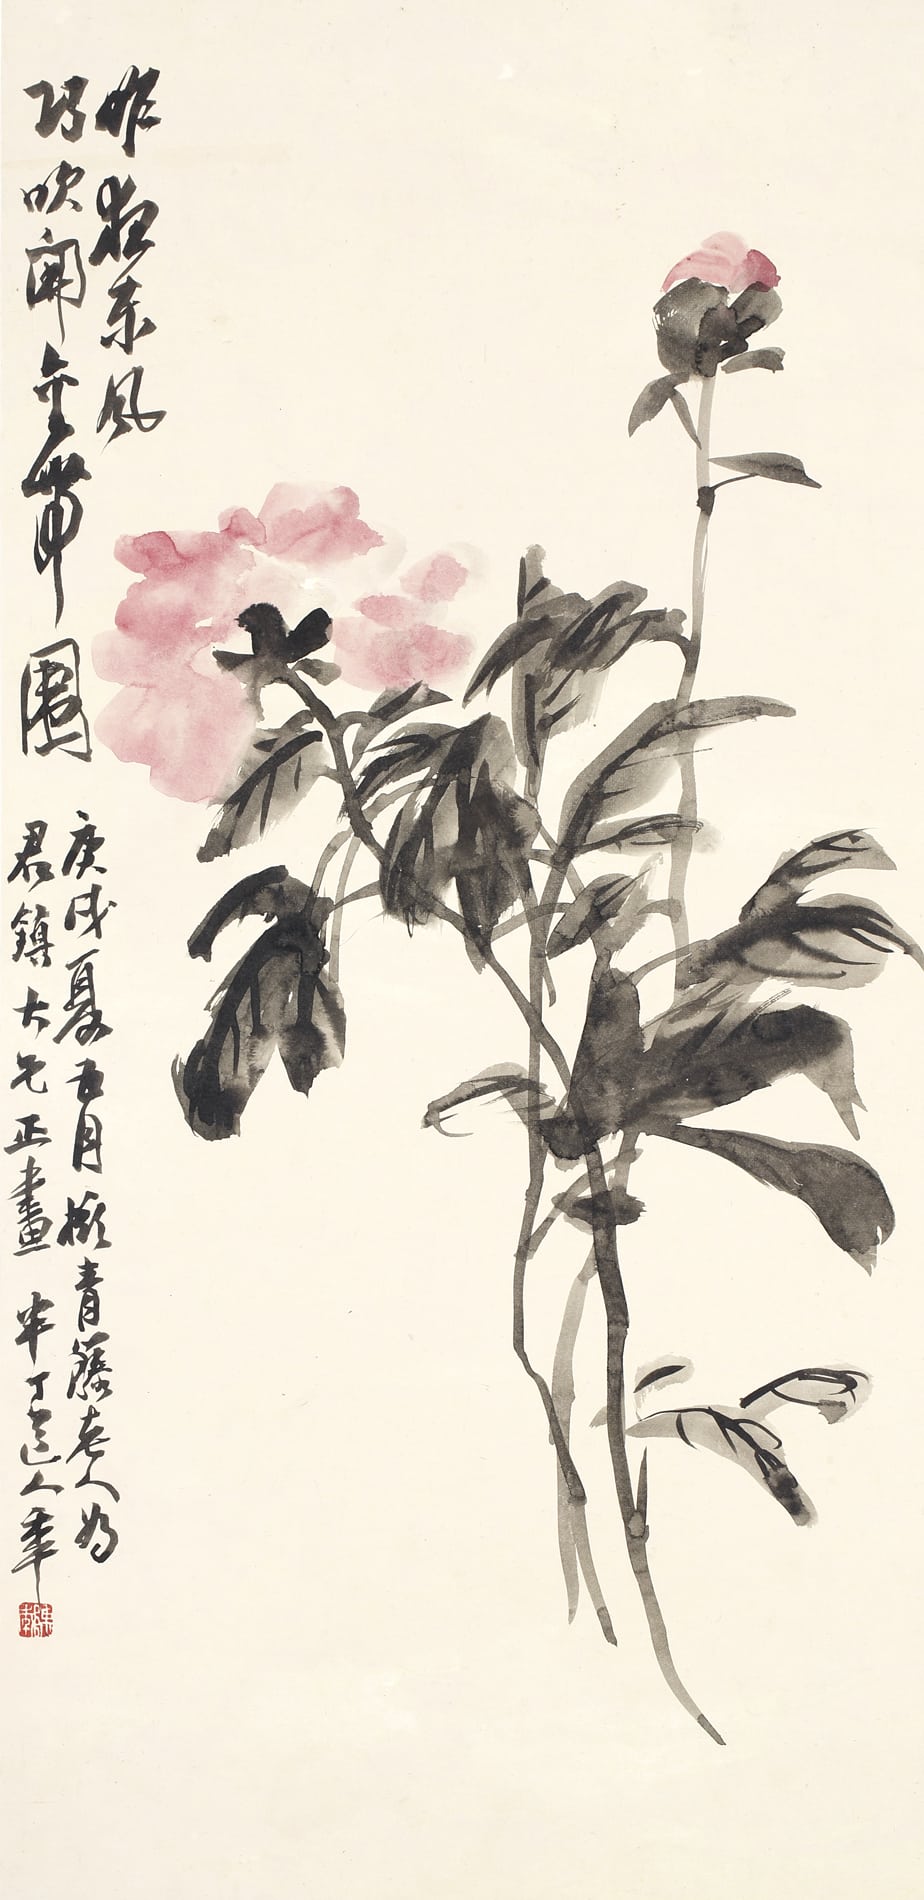 昨夜東風
巧吹開金帶圍
庚戌夏五月擬青藤老人為
君鎮大兄正畫 半丁老人年